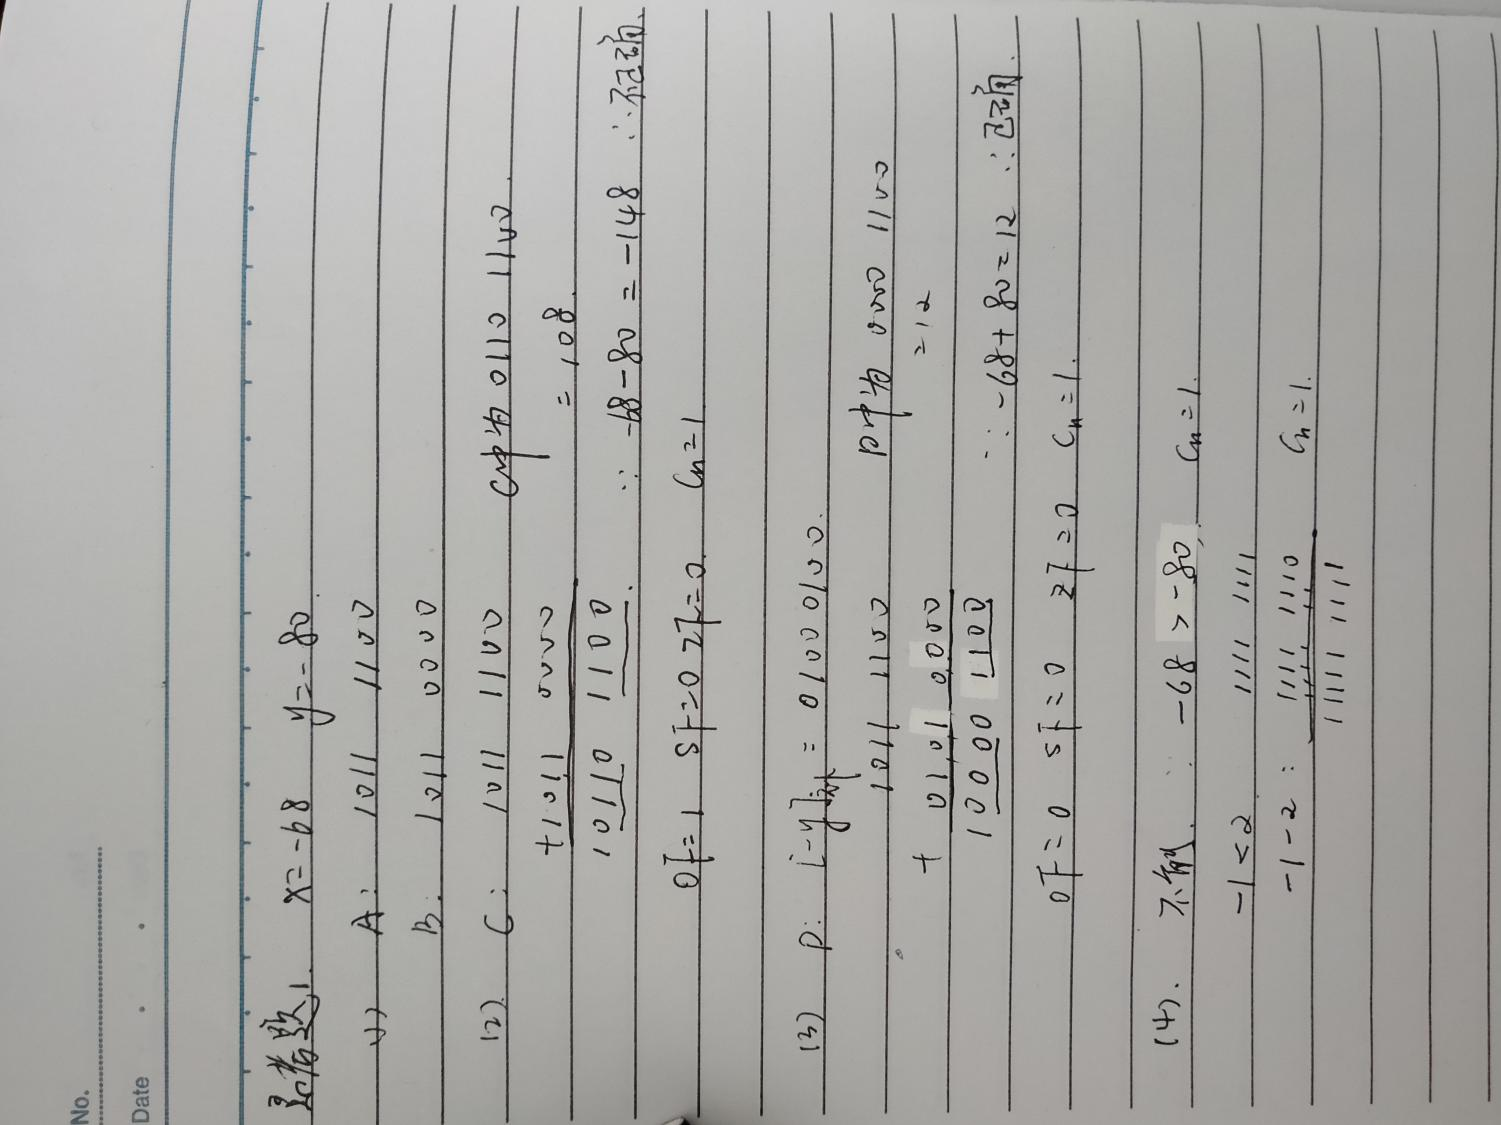 No.
Date
统考题1. x=-68 y=-80.
(1) A: 1011 1100
B: 1011 0000
(2). C: 1011 1100 C中为 0110 1100.
+1011 0000 = 108.
10110 1100. ∵ -68-80=-148 ∴不正确.
OF=1 SF=0 ZF=0. Cn=1
(3) D: [-y]补 = 0100 0100.
1011 1100 D中为 0000 1100
+ 0101 0000 =12
10000 1100 ∵ -68+80=12 ∴正确.
OF=0 SF=0 ZF=0 Cn=1.
(4). 不能. ∵ -68 > -80, Cn=1.
-1<2 1111 1111
-1-2: 1111 1110 Cn=1.
1111 1111